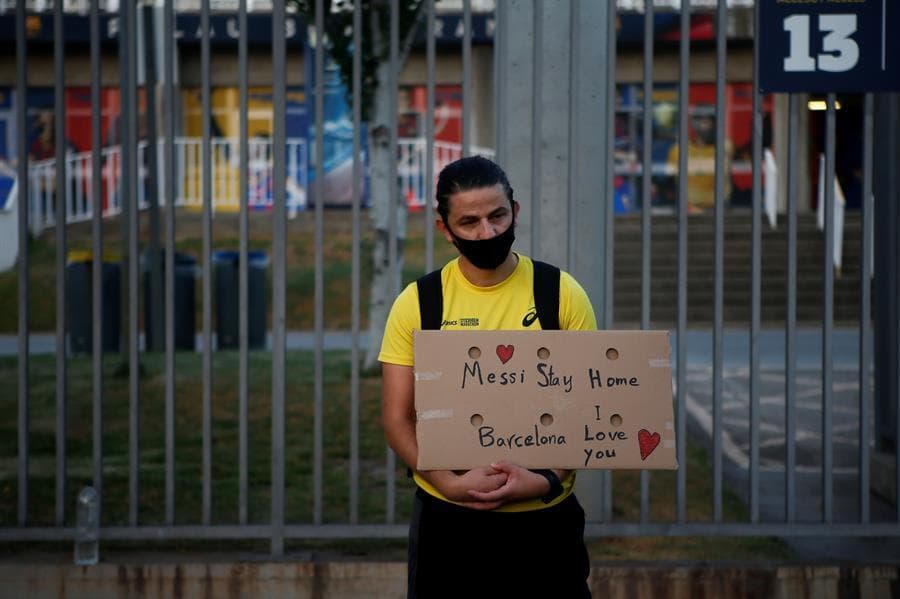 13
asics
Messi Stay Home
Barcelona I Love you